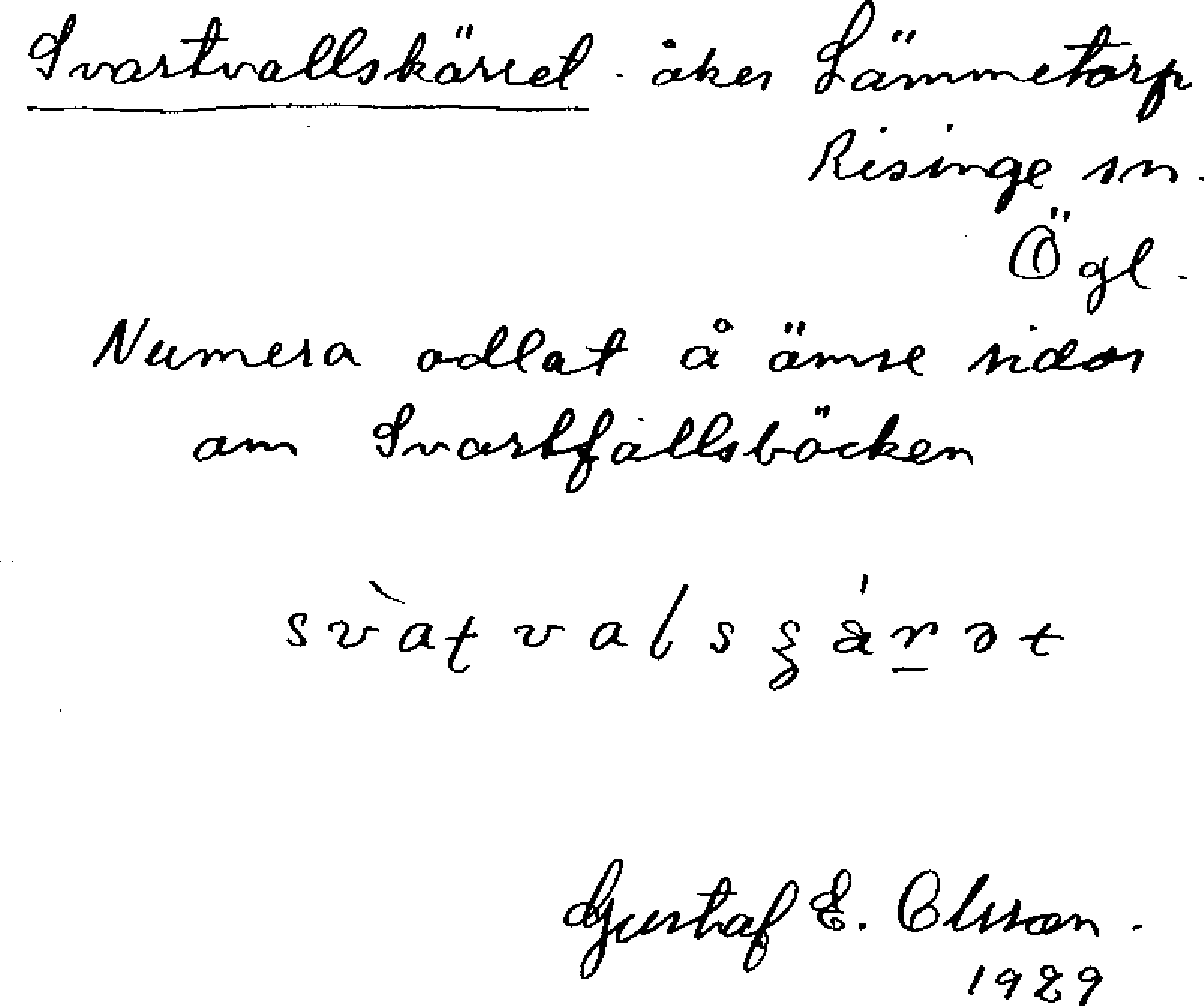 Svartvallskärret. åker Lämmetorp
Risinge sn.
Ögl.
Numera odlat å ömse sidor
om Svartfallsbäcken
Gustaf E. Olsson.
1929